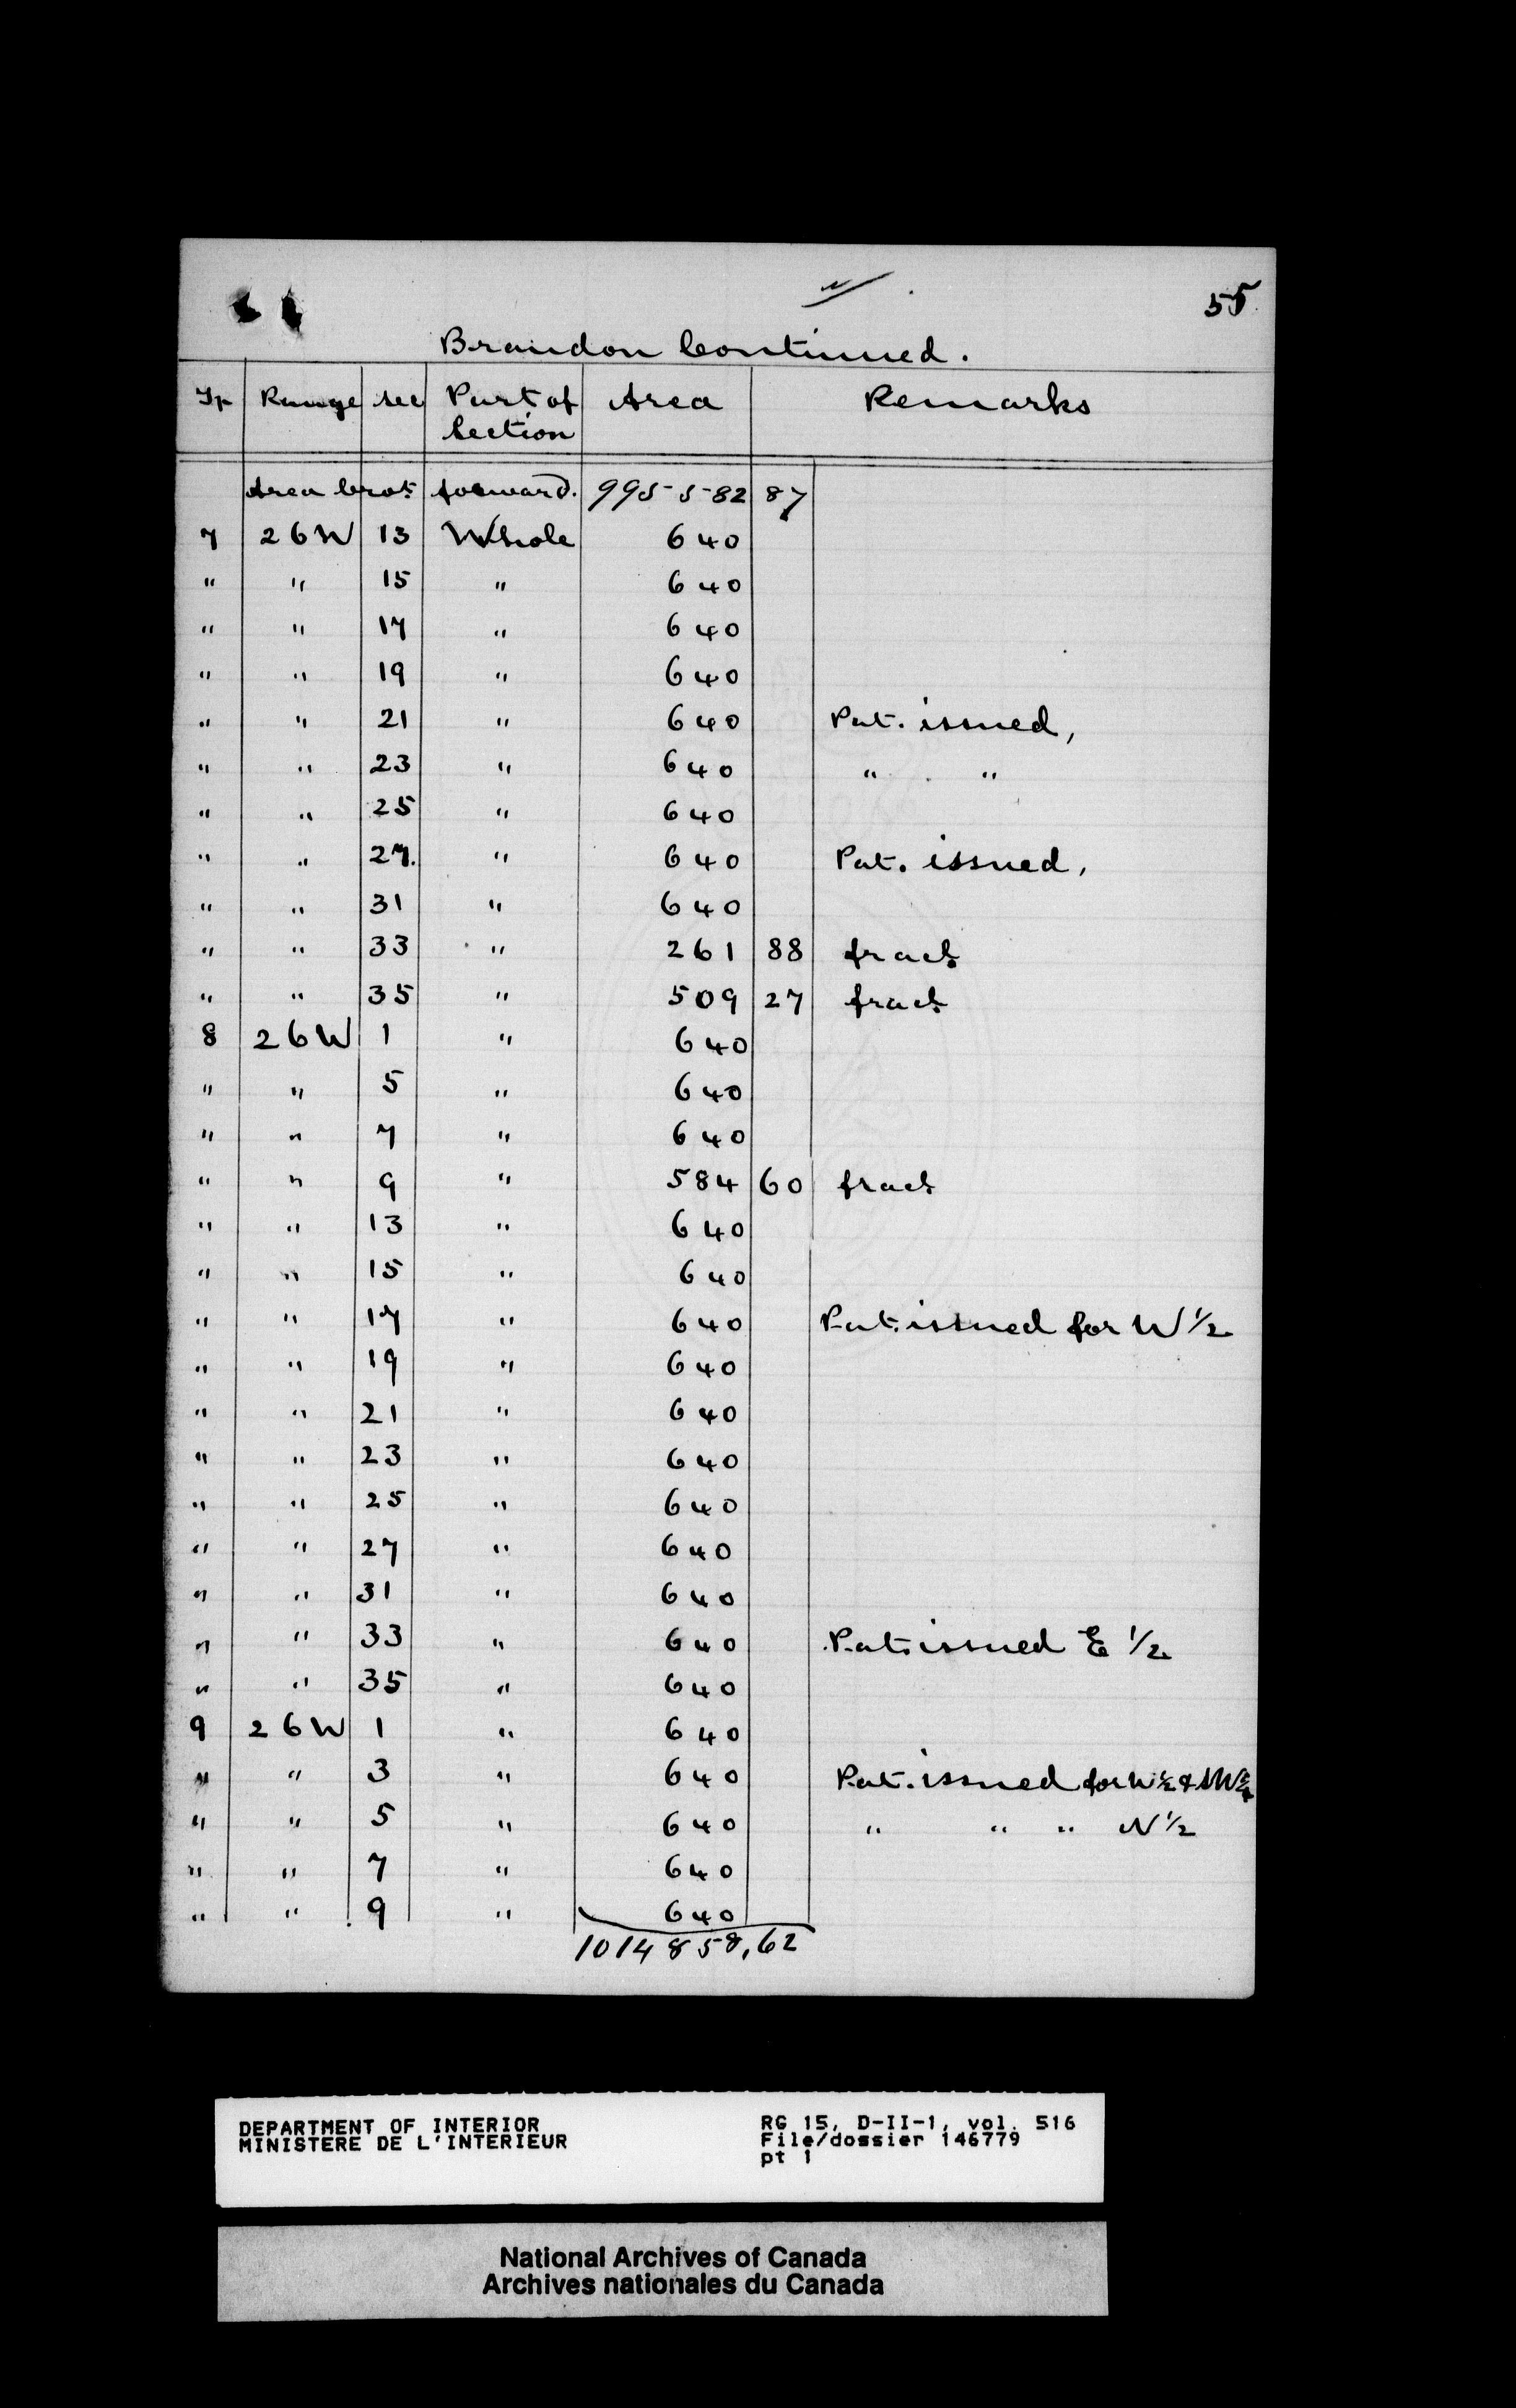 55
Brandon Continued.
Tp Range sec Part of Section Area Remarks
Area brot forward. 995582 87
7 26W 13 Whole 640
" " 15 " 640
" " 17 " 640
" " 19 " 640
" " 21 " 640 Pat. issued,
" " 23 " 640 " "
" " 25 " 640
" " 27. " 640 Pat. issued,
" " 31 " 640
" " 33 " 261 88 fract
" " 35 " 509 27 fract
8 26W 1 " 640
" " 5 " 640
" " 7 " 640
" " 9 " 584 60 fract
" " 13 " 640
" " 15 " 640
" " 17 " 640 Pat. issued for W 1/2
" " 19 " 640
" " 21 " 640
" " 23 " 640
" " 25 " 640
" " 27 " 640
" " 31 " 640
" " 33 " 640 Pat. issued E 1/2
" " 35 " 640
9 26W 1 " 640
" " 3 " 640 Pat. issued for
" " 5 " 640 " " " N 1/2
" " 7 " 640
" " 9 " 640
1014858,62
DEPARTMENT OF INTERIOR
MINISTERE DE L'INTERIEUR
RG 15, D-II-1, vol. 516
File/dossier 146779
pt 1
National Archives of Canada
Archives nationales du Canada